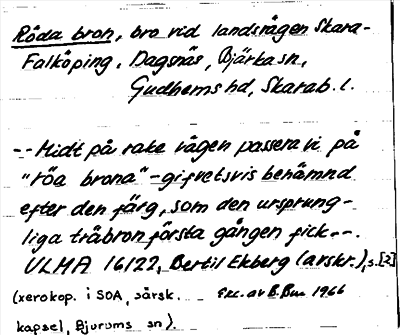 Röda bron, bro vid landsvägen Skara-
Falköping, Dagsnäs, Bjärka sn,
Gudhems hd, Skarab. l.
-- Midt på rake vägen passera vi på
"röa brona" - gifvetsvis benämnd
efter den färg, som den ursprung-
liga träbron första gången fick --.
ULMA 16122, Bertil Ekberg (avskr.), s. [2]
(xerokop. i SOA, särsk. Exc. av B. Bm 1966
kapsel, Bjurums sn).